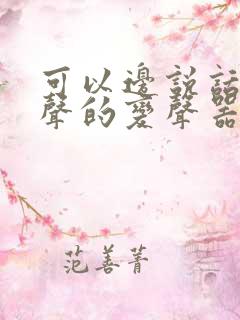 可以邊說話
聲的變聲器
范善菁